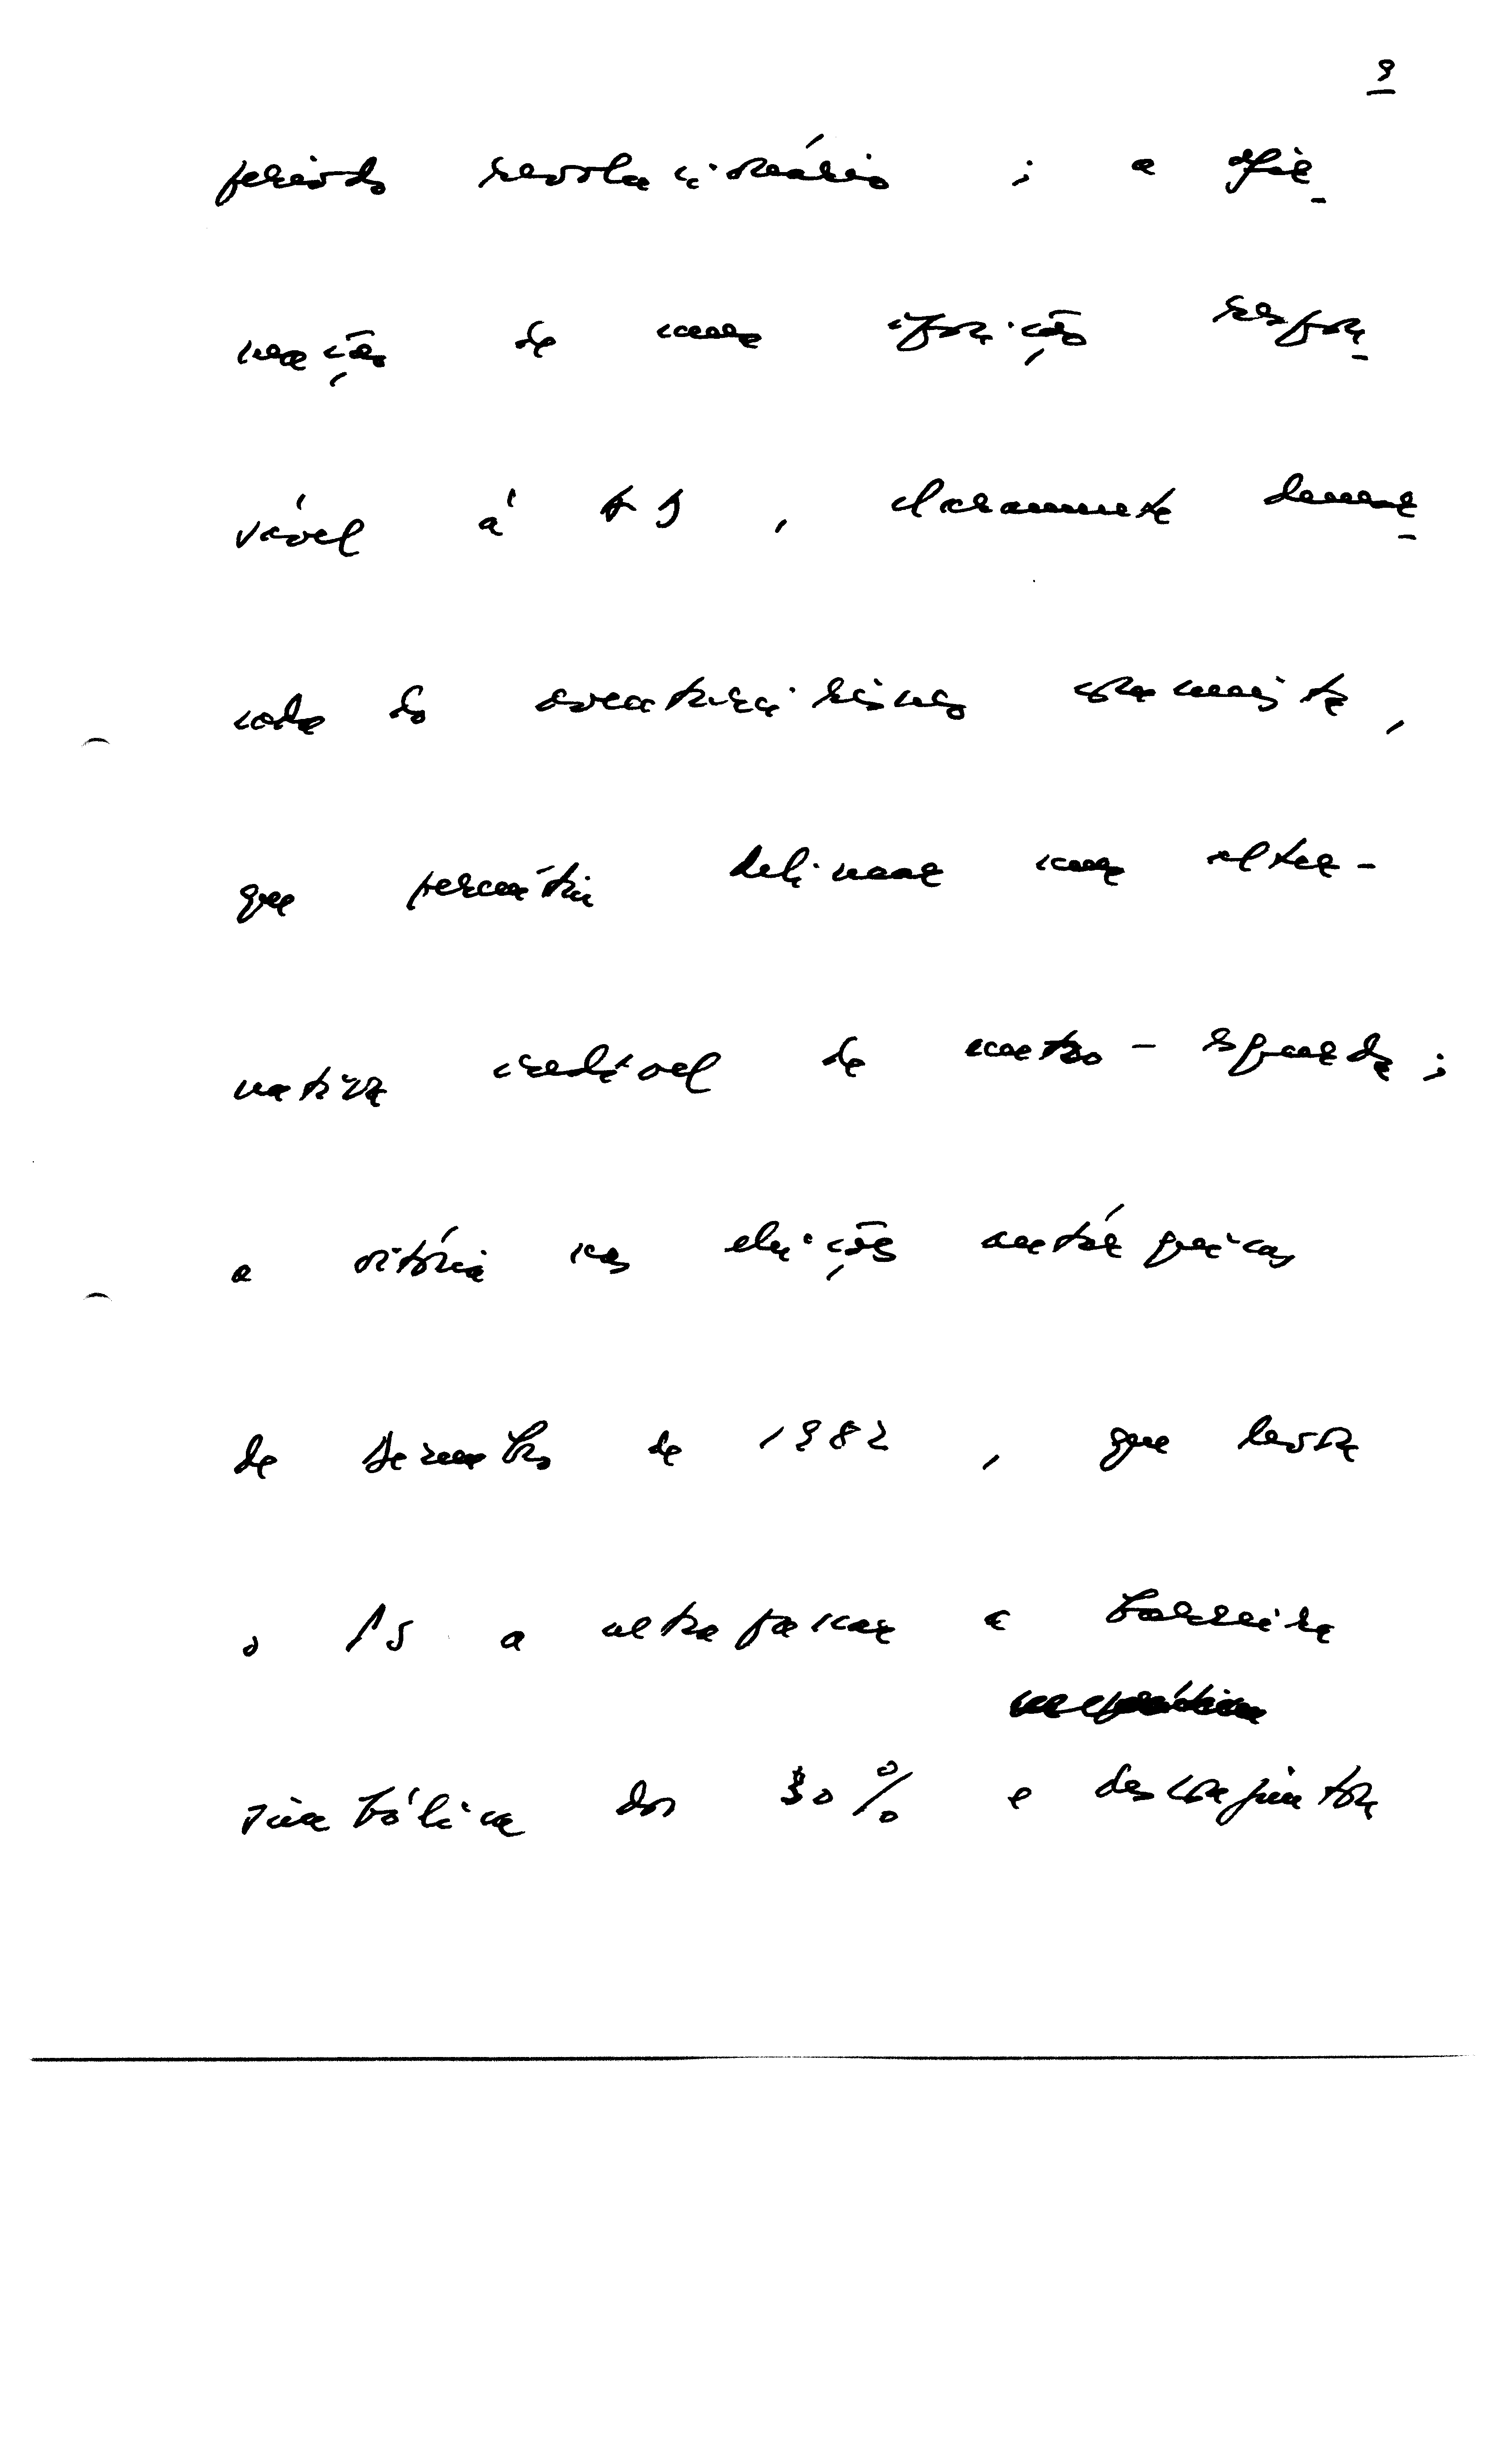 9
período revolucionário ; a afir-
mação de uma oposição respon-
sável à AD , claramente demar-
cada do aventureirismo comunista ,
que permitiu delinear uma alter-
nativa credível de centro - esquerda ;
a vitória nas eleições autárquicas
de Dezembro de 1982 , que levou
o PS a ultrapassar a barreira
simbólica dos 30% e descomprimiu